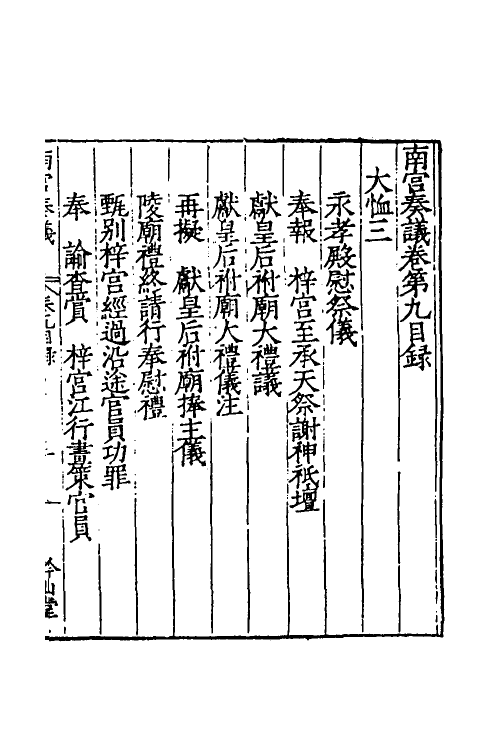 南宫奏議卷第九目録
大恤三
永孝殿慰祭儀
奉報　梓宫至承天祭謝神祇壇
獻皇后祔廟大禮議
獻皇后祔廟大禮儀注
再擬　獻皇后祔廟捧主儀
陵廟禮終請行奉慰禮
甄别梓宫經過沿途官員功罪
奉　諭査賞　梓宫江行畫策官員
南宫奏議　卷九目録　一　鈐山堂